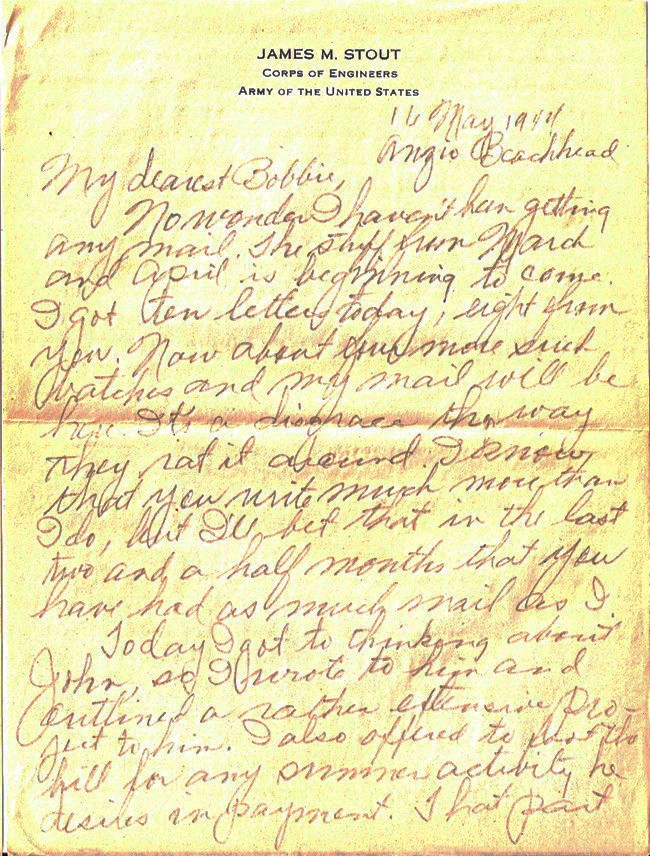 JAMES M. STOUT
CORPS OF ENGINEERS
ARMY OF THE UNITED STATES
16 May 1944
Anzio Beachhead
My dearest Bobbie,
No wonder I haven't been getting
any mail. The stuff from March
and April is beginning to come.
I got ten letters today, eight from
you. Now about four more such
batches and my mail will be
here. It's a disgrace the way
they rat it around. I know
that you write much more than
I do, but I'll bet that in the last
two and a half months that you
have had as much mail as I.
Today I got to thinking about
John, so I wrote to him and
outlined a rather extensive pro-
ject to him. I also offered to foot the
bill for any summer activity he
desires in payment. That part